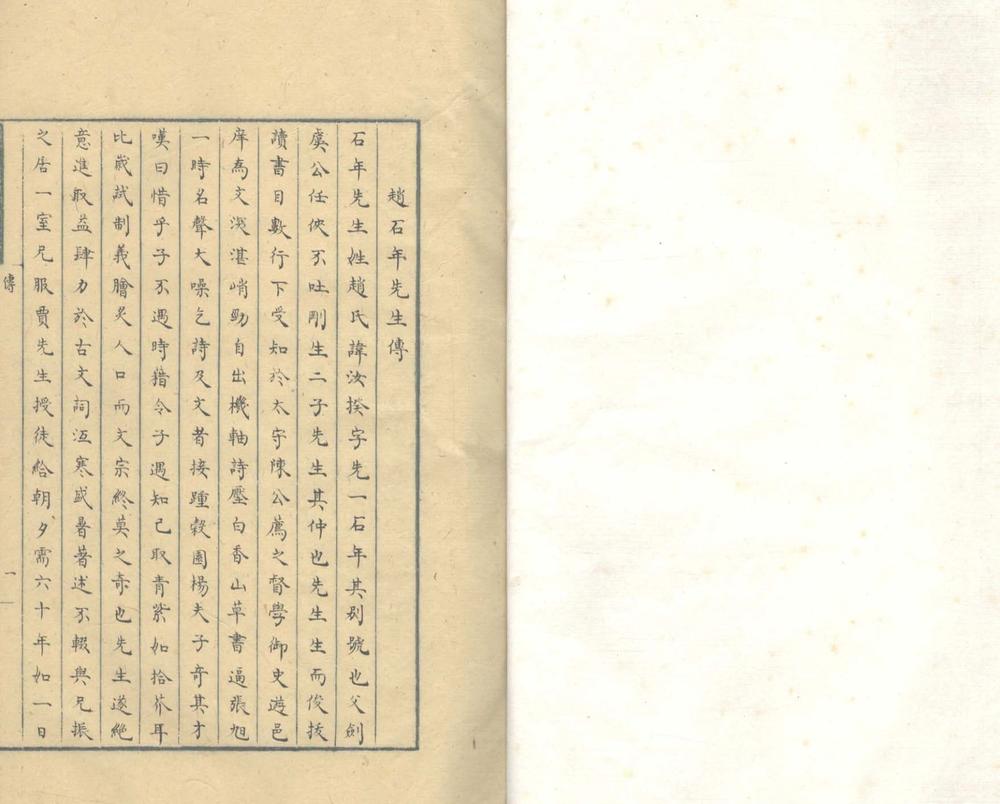 趙石年先生傳
石年先生姓趙氏諱汝揆字先一石年其别號也父劍
虞公任俠不吐剛生二子先生其仲也先生生而俊拔
讀書目數行下受知於太守陳公薦之督學御史遊邑
庠為文淡湛峭勁自出機軸詩壓白香山草書逼張旭
一時名聲大噪乞詩及文者接踵榖園楊夫子竒其才
嘆曰惜乎子不遇時猎令子遇知己取青紫如拾芥耳
比歲試制義膾炙人口而文宗終莫之竒也先生遂絶
意進取益肆力於古文詞沍寒盛暑著述不輟與兄振
之居一室凡服賈先生授徒給朝夕需六十年如一日
傳
一